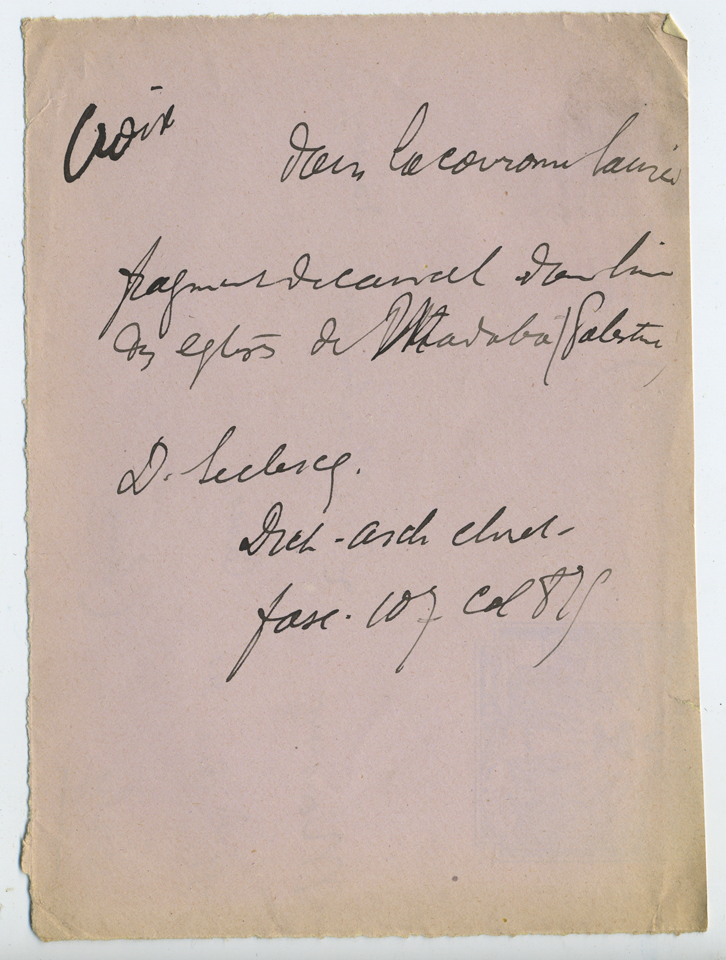 Croix
dans la couronne laurée
fragment de cancel dans l'une
des eglises de Madaba (Palestine
D. Leclercq.
Dict - arch chret -
fasc. 107 col 875